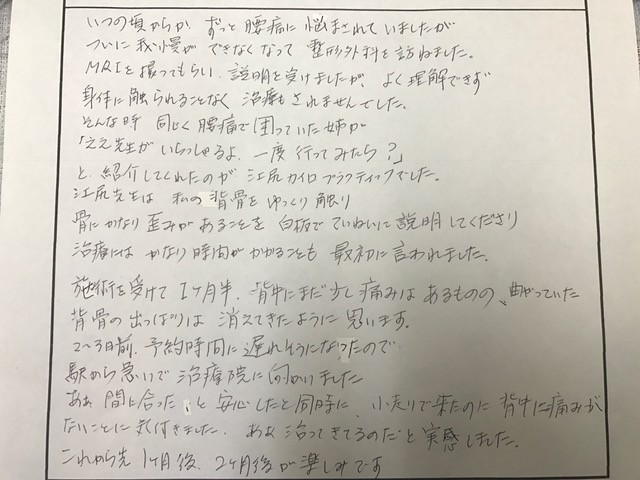 いつの頃からか ずっと 腰痛に 悩まされていましたが
ついに 我慢が できなくなって 整形外科を 訪ねました。
MRIを 撮ってもらい、説明を受けましたが、よく理解できず
身体に触られることなく 治療もされませんでした。
そんな時 同じく 腰痛で 困っていた姉が
「ええ先生が いらっしゃるよ、一度行ってみたら?」
と、紹介してくれたのが 江尻カイロプラクティックでした。
江尻先生は 私の 背骨を ゆっくり触り
骨に かなり 歪みが あることを 白板で ていねいに 説明してくださり
治療には かなり時間が かかることも 最初に 言われました。
施術を受けて 1ヶ月半、背中に まだ 少し 痛みは あるものの、曲がっていた
背骨の 出っぱりは 消えてきたように 思います。
2~3日前、予約時間に 遅れそうになったので
駅から 急いで 治療院に 向かいました
あぁ 間に合った と 安心したと同時に、小走りで来たのに 背中に痛みが
ないことに 気付きました。あぁ 治ってきてるのだと 実感しました。
これから先 1ヶ月後、2ヶ月後が 楽しみです